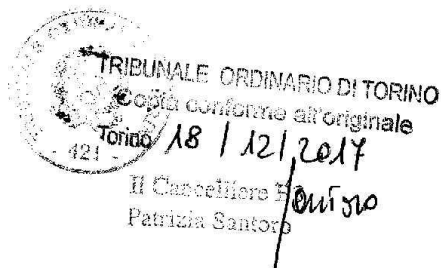 TRIBUNALE ORDINARIO DI TORINO
Copia conforme all'originale
Torino 18 / 12 / 2017
421
Il Cancelliere
Patrizia Santoro